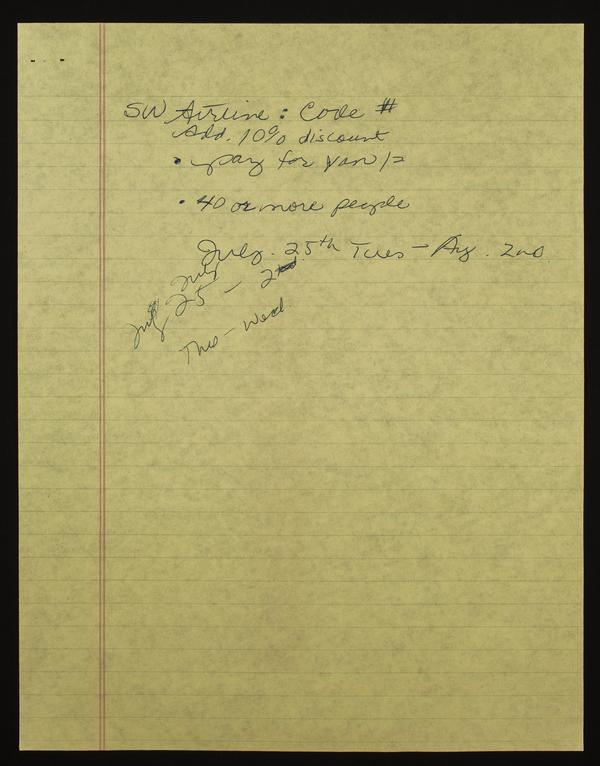 SW Airline : Code #
Add. 10% discount
• pay for van
• 40 or more people
July. 25th Tues - Aug. 2nd
July
25 - 2nd
July
Thus - Wed.